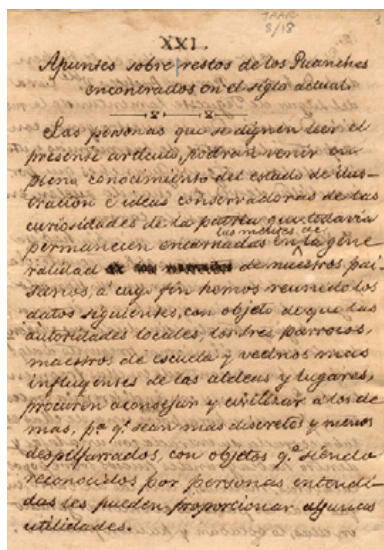 XXI.
Apuntes sobre restos de los Guanches
encontrados en el siglo actual.
Las personas que se dignen leer el
presente artículo, podrán venir en
pleno conocimiento del estado de ilus-
tración e ideas conservadoras de las
curiosidades de la patria que todavía
permanecen encarnadas en
las mentes de
la gene
ralidad de nuestros pai
sanos, a cuyo fin hemos reunido los
datos siguientes, con objeto de que las
autoridades locales, los Sres parrocos,
maestros de escuela y vecinos mas
influyentes de las aldeas y lugares,
procuren aconsejar y civilizar a los de
mas, pa. q.e sean mas discretos y menos
despilfarrados, con objetos q.e siendo
reconocidos por personas entendi-
das les pueden proporcionar algunas
utilidades.